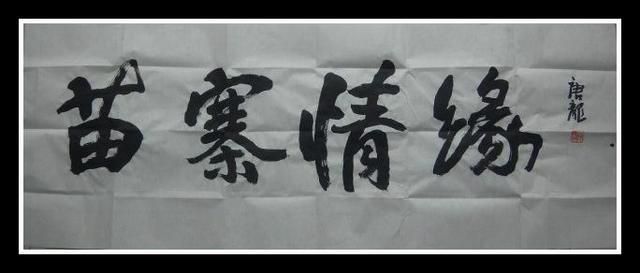 苗寨情缘
唐龍